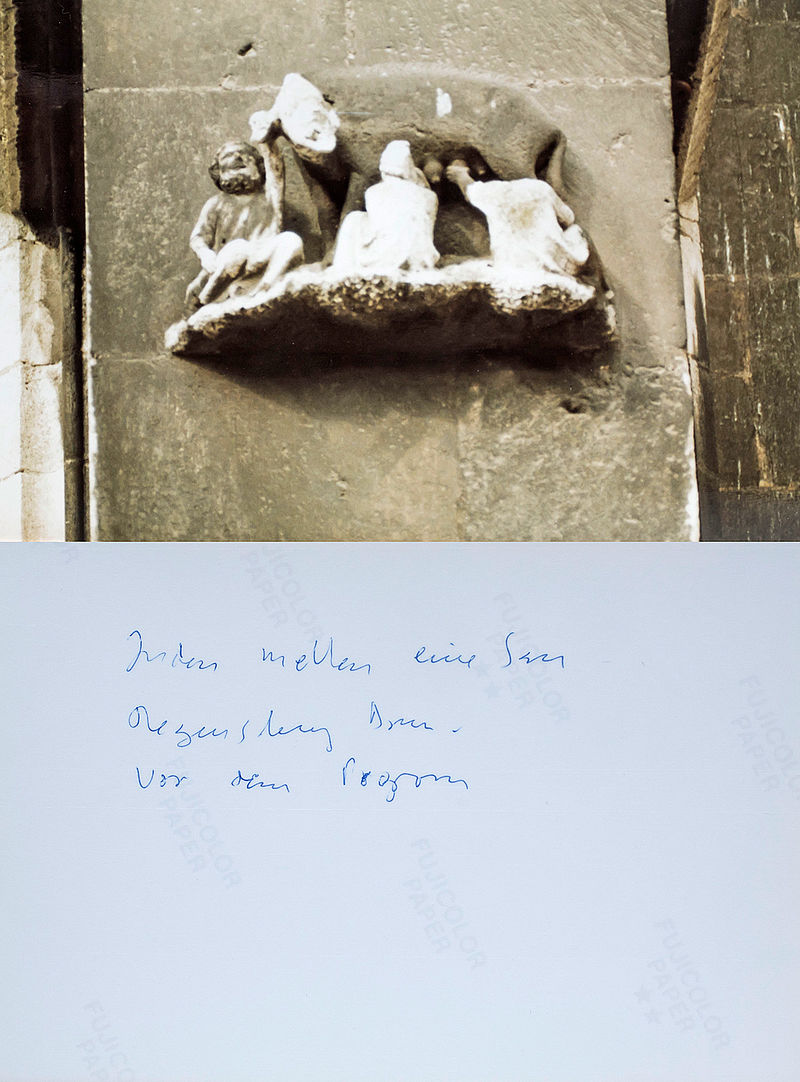 Juden melken eine Sau
Regensburg Dom.
Vor dem Pogrom
FUJICOLOR
PAPER
FUJICOLOR
PAPER
FUJICOLOR
PAPER
FUJICOLOR
PAPER
FUJICOLOR
PAPER
FUJICOLOR
PAPER